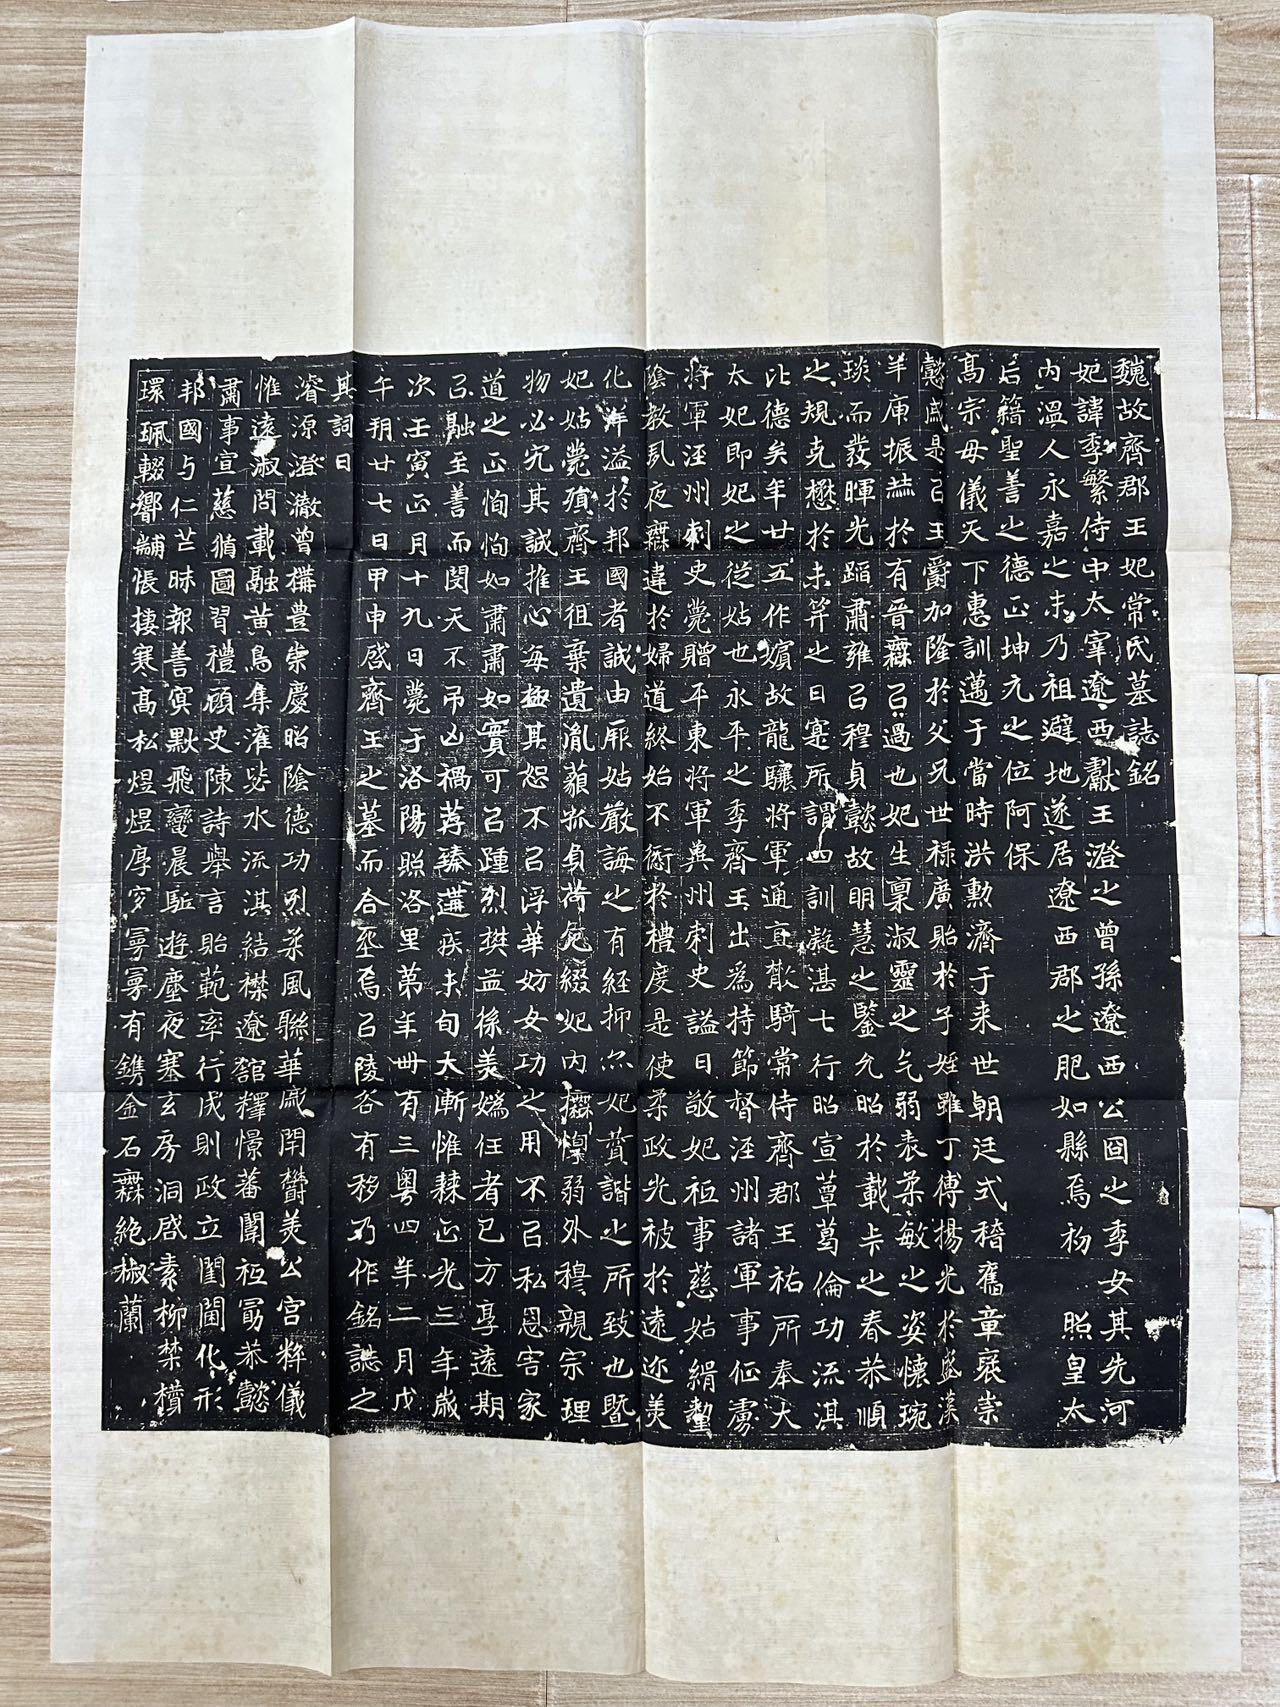 魏故齊郡王妃常氏墓誌銘
妃諱季繁侍中太宰遼西獻王澄之曾孫遼西公囧之季女其先河
内溫人永嘉之末乃祖避地遂居遼西郡之肥如縣焉初　照皇太
后籍聖善之德正坤元之位阿保
高宗母儀天下惠訓邁于當時洪勳濟于来世朝廷式稽舊章襃崇
懿戚是㠯王爵加隆於父兄世祿廣貽於子姪雖丁傅揚光於盛漢
羊庾振燕於有晉無㠯過也妃生稟淑靈之气弱表柔敏之姿懷琬
琰而發暉光蹈肅雍㠯穆貞懿故明慧之鑒允昭於載卡之春恭順
之規克懋於未笄之日寔所謂四訓凝湛七行昭宣蕈葛倫功流淇
比德矣年廿五作嬪故龍驤將軍通直散騎常侍齊郡王祐所奉大
太妃即妃之從姑也永平之季齊王出爲持節督涇州諸軍事征虜
將軍涇州刺史薨贈平東將軍冀州刺史謚曰敬妃袛事慈姑緝釐
陰教夙夜無違於婦道終始不衍於禮度是使柔政光被於遠迩美
化洋溢於邦國者誠由厥姑嚴誨之有經抑亦妃賛諧之所致也暨
妃姑薨殞齊王祖棄遺胤藐孤負荷危綴妃内撫惸弱外穆親宗理
物必究其誠推心每極其恕不㠯浮華妨女功之用不㠯私恩害家
道之正恂恂如肅肅如實可㠯踵烈樊孟徐美嬀任者已方享遠期
㠯融至善而閔天不吊凶禍荐臻遘疾未旬大漸惟棘正光三年歲
次壬寅正月十九日薨于洛陽照洛里第年卌有三粵四年二月戊
午朔廿七日甲申啓齊王之墓而合丕焉㠯陵谷有移乃作銘誌之
其詞曰
濬源澄澈曾構豊崇慶昭陰德功烈柔風聯華戚閈欝美公宫粹儀
惟遠淑問載融黄鳥集灌毖水流淇結襟遼舘釋憬蕃闈袛勗恭懿
肅事宣慈循圖習禮顧史陳詩舉言貽範率行成則政立閨閫化形
邦國与仁芒昧報善㝠默飛鸞晨駈遊壓夜塞玄房洞啓素柳禁櫝
環珮輟響黼悵捿寒高松煜煜厚穸㝱㝱有鐫金石無絶椒蘭